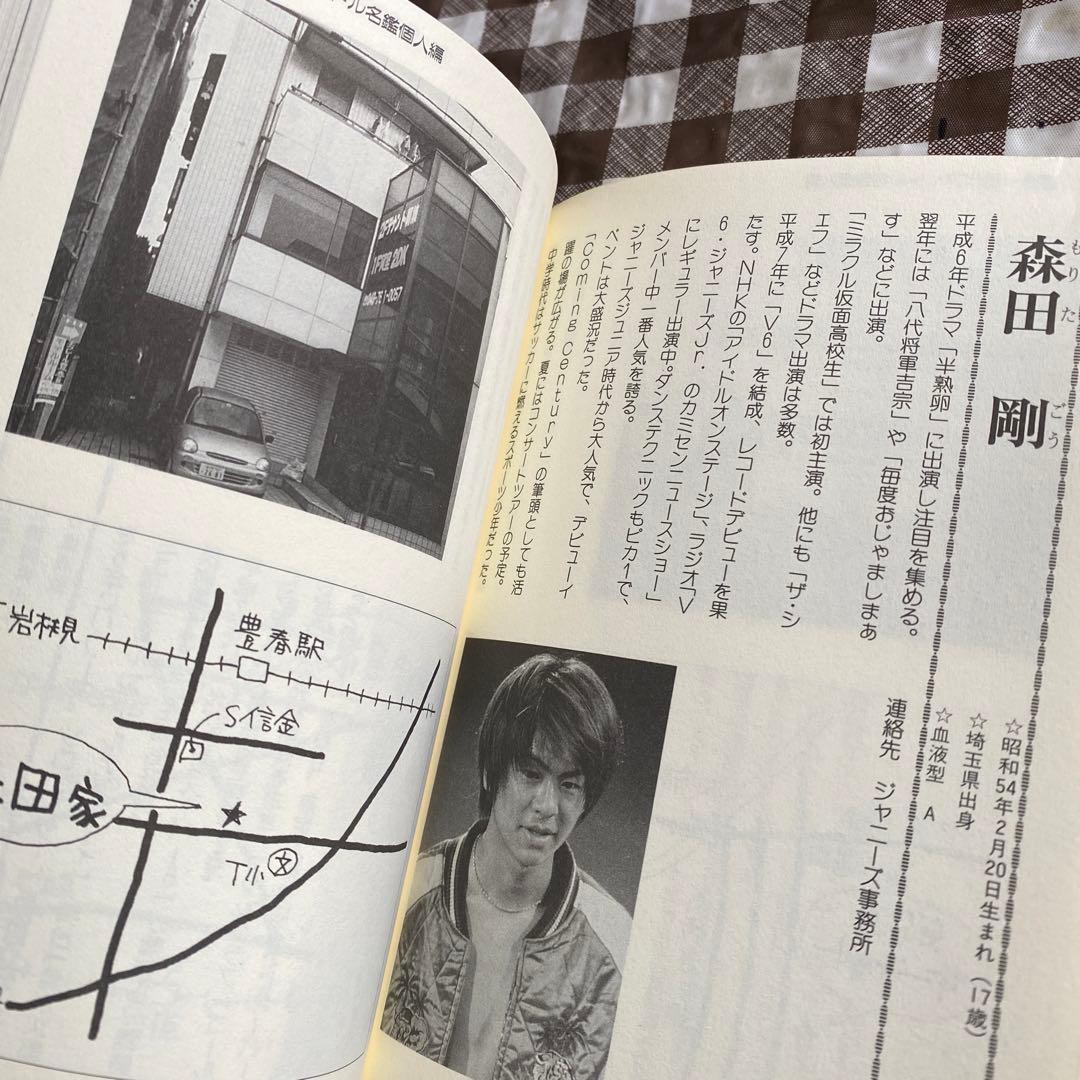 ル名鑑個人編
1FX坪 2DK
1-0057
岩槻
豊春駅
S信金
田家
T小
文
森田剛
もりたごう
平成6年ドラマ「半熟卵」に出演し注目を集める。
翌年には「八代将軍吉宗」や「毎度おじゃましまぁ
す」などに出演。
「ミラクル仮面高校生」では初主演。他にも「ザ・シ
エフ」などドラマ出演は多数。
平成7年に「V6」を結成、レコードデビューを果
たす。NHKの「アイドルオンステージ」、ラジオ「V
6・ジャニーズJr.のカミセンニュースショー」
にレギュラー出演中。ダンステクニックもピカ1で、
メンバー中一番人気を誇る。
ジャニーズジュニア時代から大人気で、デビューイ
ベントは大盛況だった。
「Coming Century」の筆頭としても活
躍の場が広がる。夏にはコンサートツアーの予定。
中学時代はサッカーに燃えるスポーツ少年だった。
☆昭和54年2月20日生まれ(17歳)
☆埼玉県出身
☆血液型 A
連絡先 ジャニーズ事務所